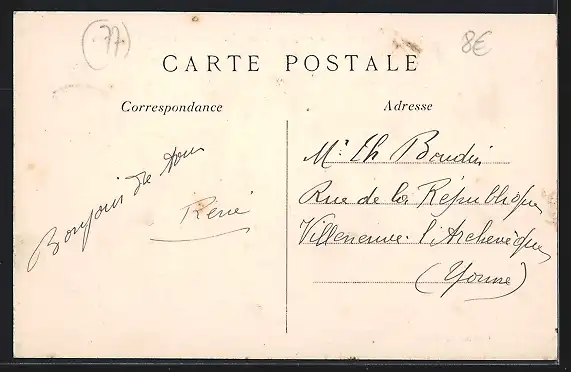 (77)
8€
CARTE POSTALE
Correspondance
Adresse
Bonjour de tous
René
Mr. Ch Boudin
Rue de la République
Villeneuve l'Archevêque
(Yonne)